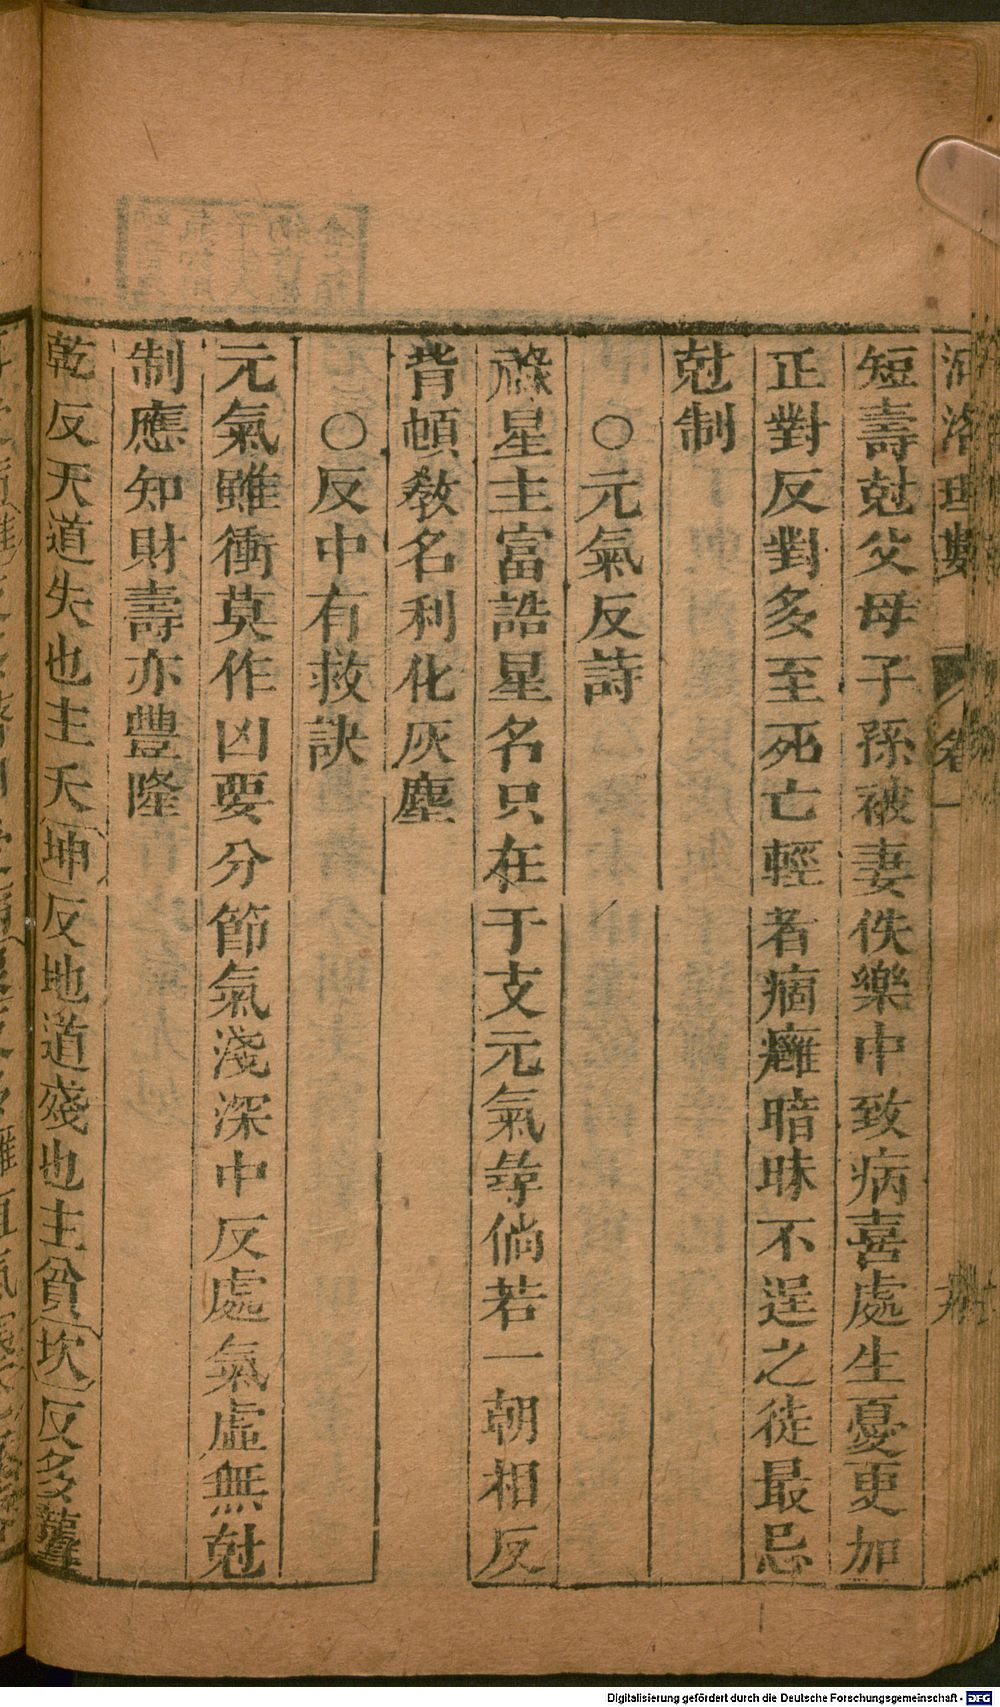 河洛理數 卷一
短壽尅父母子孫被妻佚樂中致病喜處生憂更加
正對反對多至死亡輕者痼癰暗昧不逞之徒最忌
尅制
○元氣反詩
祿星主富誥星名只在于支元氣尋倘若一朝相反
背頓敎名利化灰塵
○反中有救訣
元氣雖衝莫作凶要分節氣淺深中反處氣虛無尅
制應知財壽亦豐隆
乾反天道失也主夭坤反地道殘也主貧坎反多聾
Digitalisierung gefördert durch die Deutsche Forschungsgemeinschaft - DFG